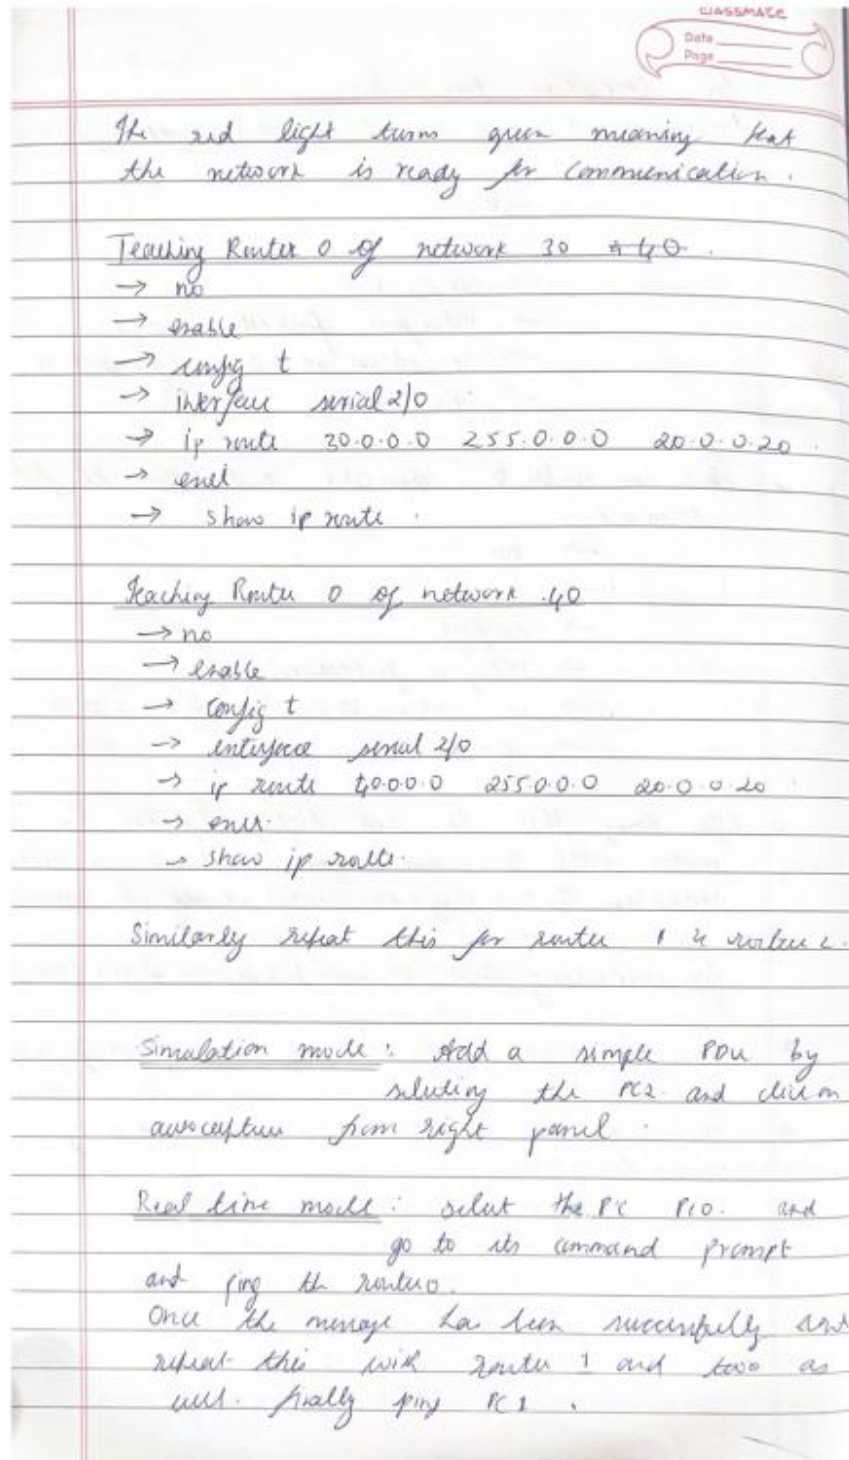 classmate
Date
Page
The red light turns green meaning that
the network is ready for communication.
Teaching Router 0 of network 30 & 40.
→ no
→ enable
→ config t
→ interface serial 2/0
→ ip route 30.0.0.0 255.0.0.0 20.0.0.20.
→ end
→ show ip route.
Teaching Router 0 of network 40
→ no
→ enable
→ config t
→ interface serial 2/0
→ ip route 40.0.0.0 255.0.0.0 20.0.0.20.
→ end.
→ show ip route.
Similarly repeat this for router 1 & router 2.
Simulation mode: Add a simple PDU by
selecting the PC2 and click on
autocapture from right panel.
Real time mode: select the PC PC0. and
go to its command prompt
and ping the router0.
Once the message has been successfully sent
repeat this with router 1 and two as
well. finally ping PC1.